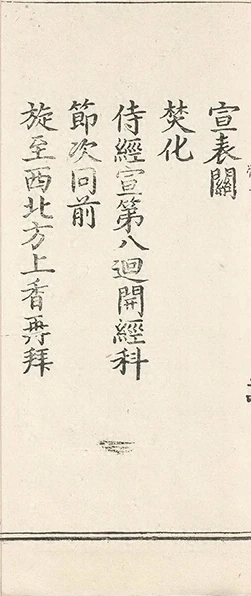 宣表關
焚化
侍經宣第八迴開經科
節次同前
旋至西北方上香再拜